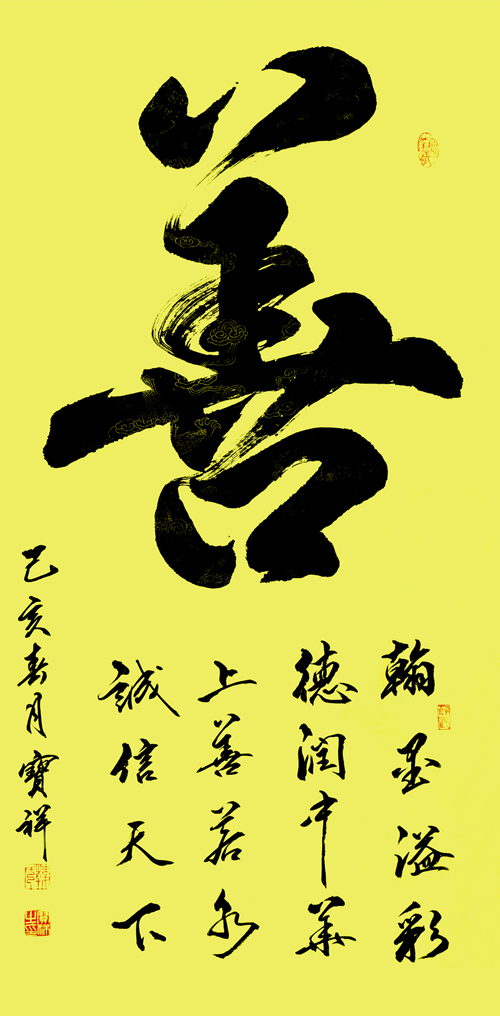 善
翰墨溢彩
德润中华
上善若水
誠信天下
己亥春月寶祥